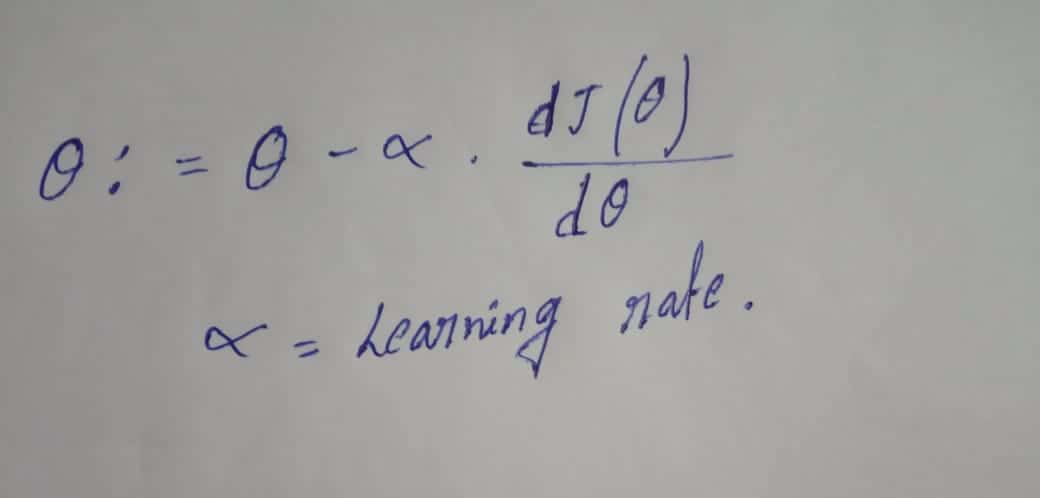 θ := θ - α . dJ(θ)/dθ
α = Learning rate.